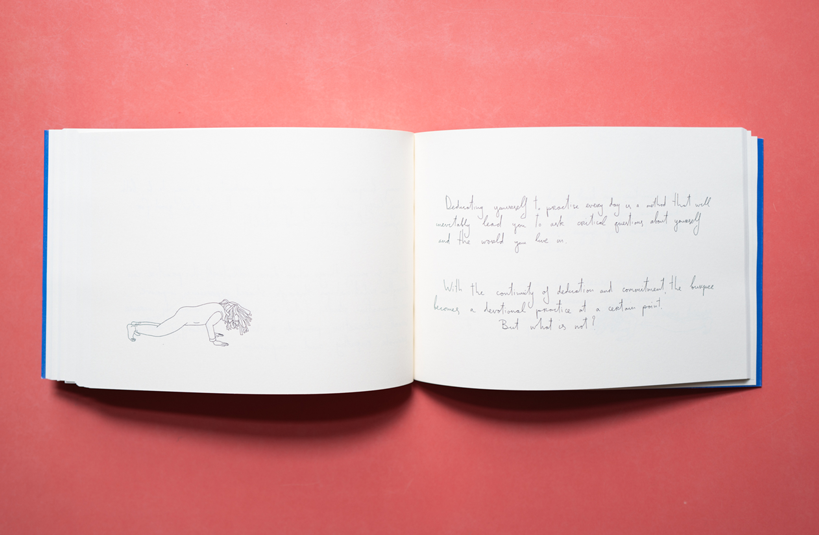 Dedicating yourself to practice every day is a method that will
inevitably lead you to ask critical questions about yourself
and the world you live in
With the continuity of dedication and commitment, the burpee
becomes a devotional practice at a certain point.
But what is not?